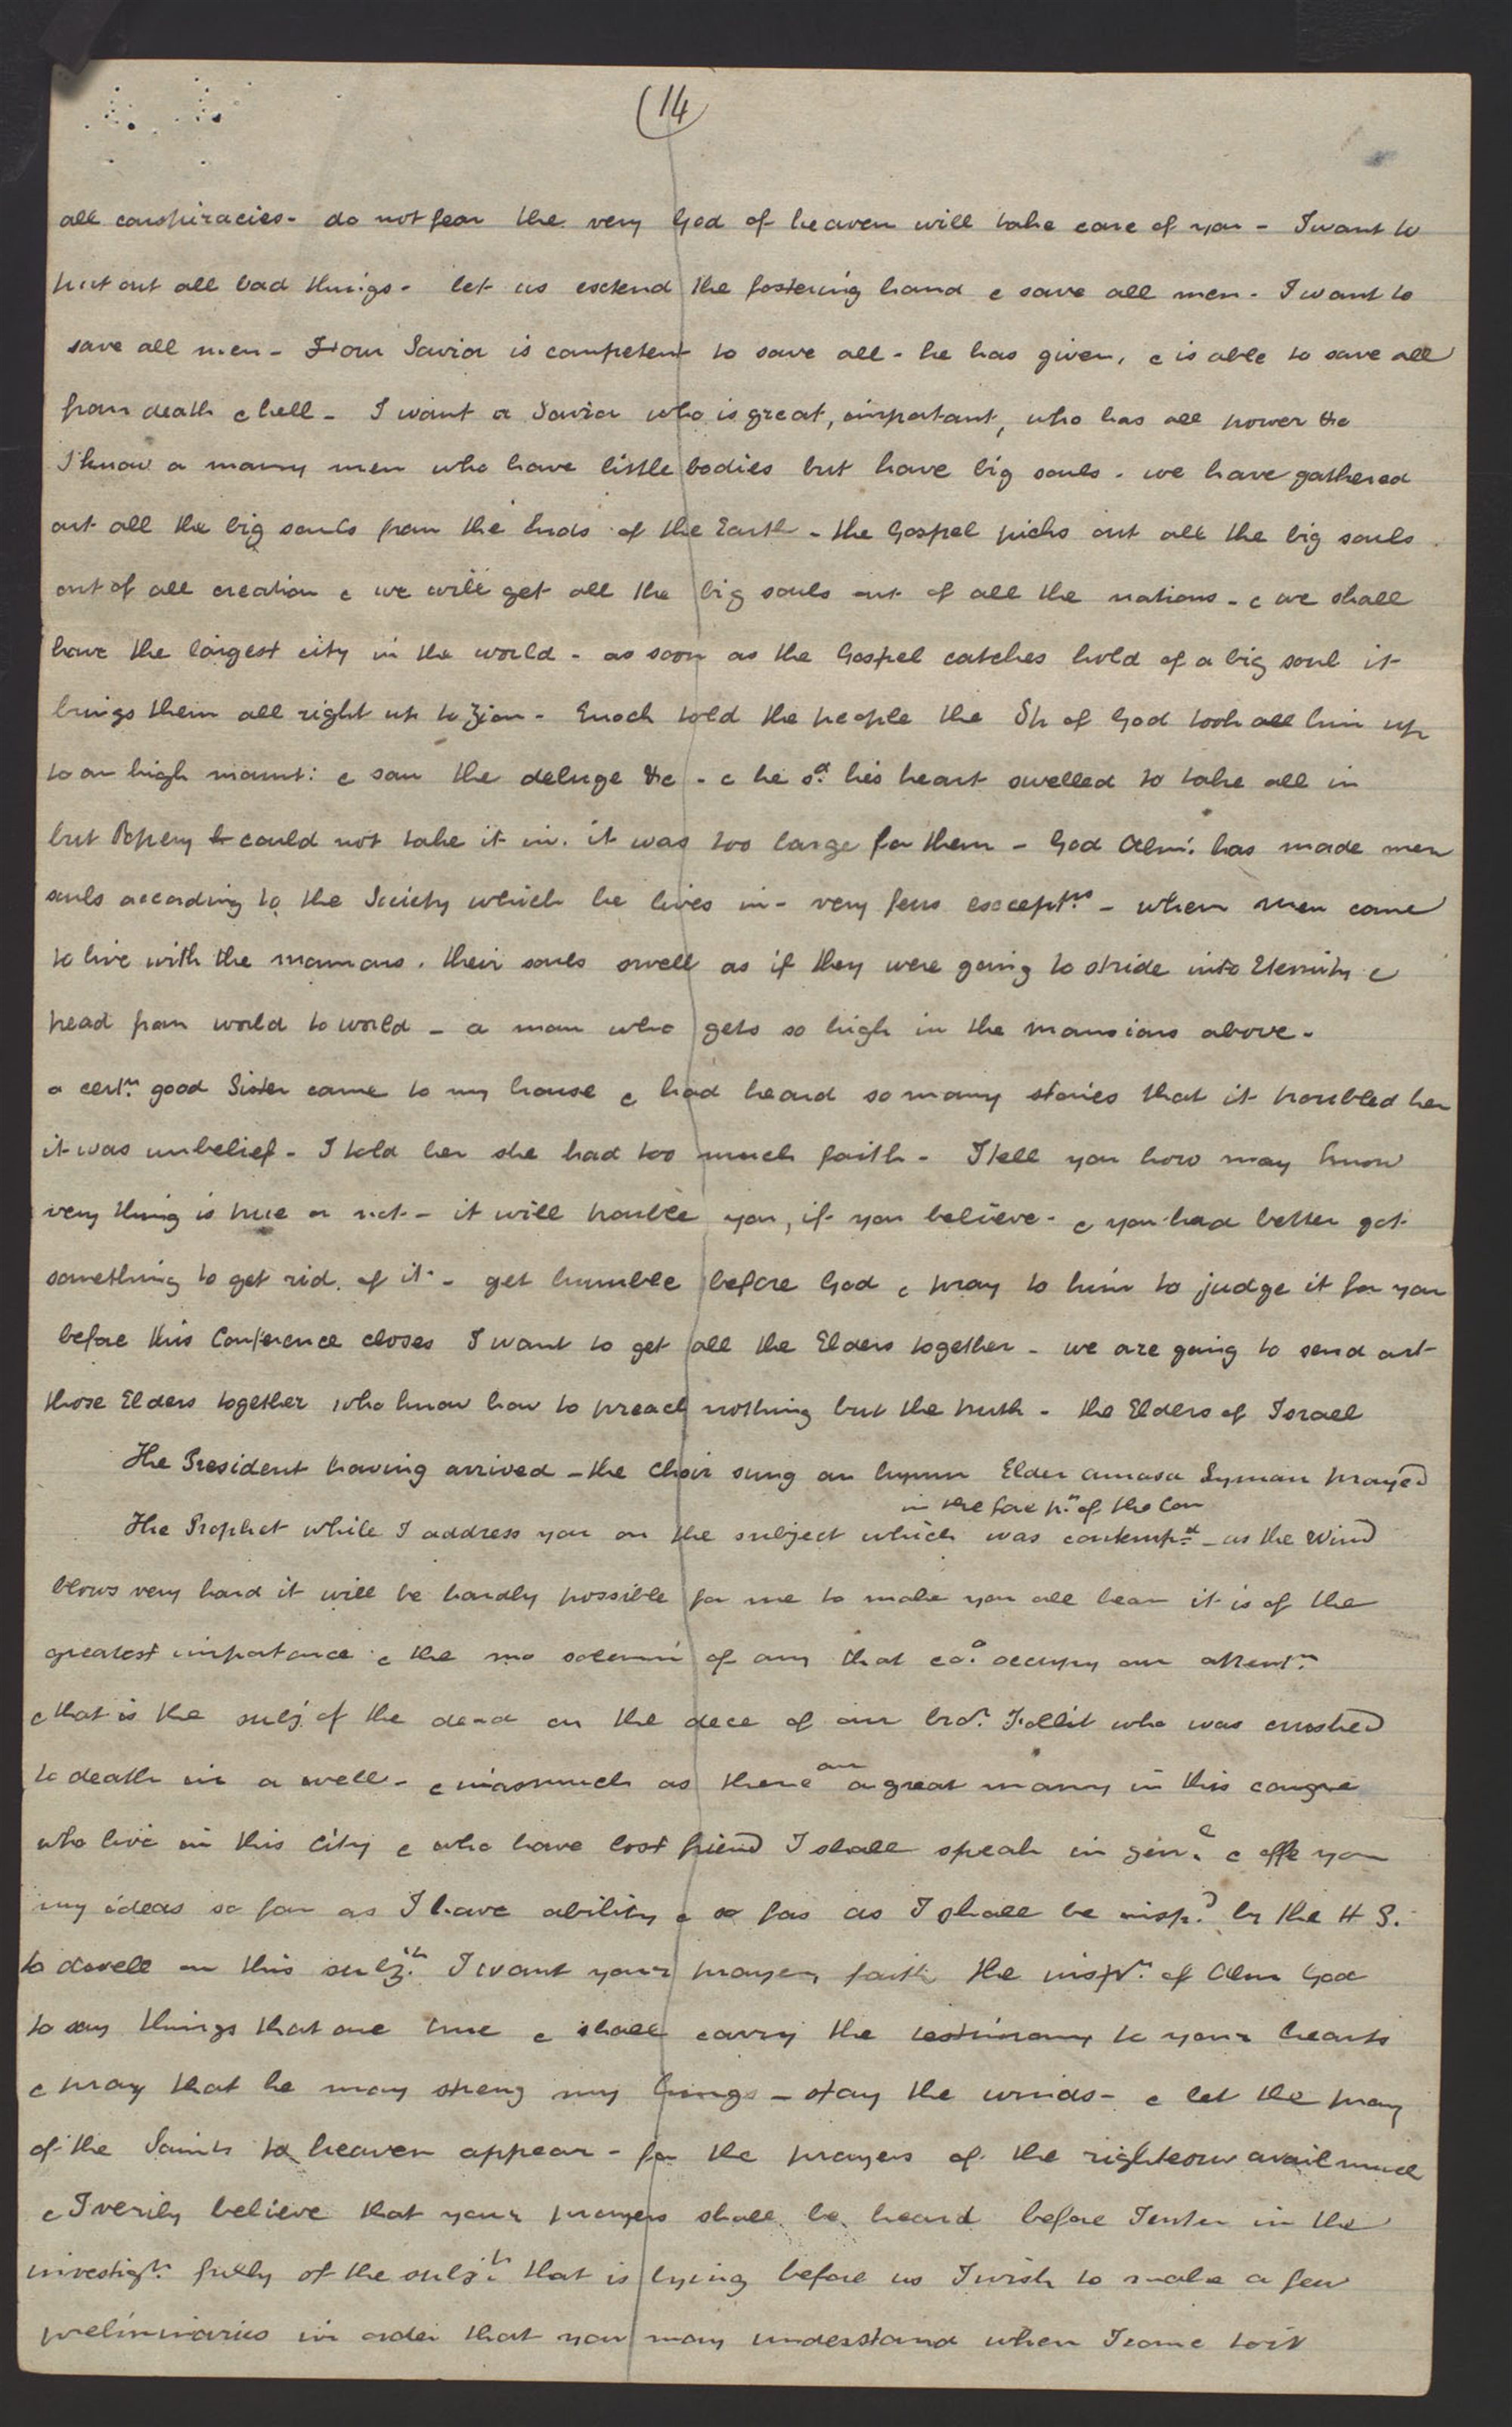 (14
all conspiracies - do not fear the very God of heaven will take care of you - I want to
put out all bad things - let us extend the fostering hand & save all men - I want to
save all men - Our Savior is competent to save all - he has given, & is able to save all
from death & hell - I want a Savior who is great, important, who has all power &c
I know a many men who have little bodies but have big souls. we have gathered
out all the big souls from the Ends of the Earth - the Gospel picks out all the big souls
out of all creation & we will get all the big souls out of all the nations - & we shall
have the largest city in the world - as soon as the Gospel catches hold of a big soul it
brings them all right up to Zion - Enoch told the people the Sp of God took all him up
to an high mount: & saw the deluge &c - & he sd. his heart swelled to take all in
but Popery could not take it in. it was too large for them - God Almi: has made men
souls according to the Society which he lives in - very few exceptns - when men come
to live with the mormons. their souls swell as if they were going to stride into Eternity &
head from world to world - a man who gets so high in the mansions above -
a certn. good Sister came to my house & had heard so many stories that it troubled her
it was unbelief - I told her she had too much faith - I tell you how may know
very thing is true or not - it will trouble you, if you believe - & you had better get
something to get rid. of it - get humble before God & pray to him to judge it for you
before this Conference closes I want to get all the Elders together - we are going to send out
those Elders together who know how to preach nothing but the truth - the Elders of Israel
The President having arrived - the choir sung an hymn Elder Amasa Lyman prayed
in the fore pn. of the Con
The Prophet while I address you on the subject which was contempd. - as the Wind
blows very hard it will be hardly possible for me to make you all hear it is of the
greatest importance & the mo solemn of any that co. occupy our attentn.
& that is the subj. of the dead on the dece of our bror. Follit who was crushed
to death in a well - & inasmuch as there are a great many in this congre
who live in this City & who have lost friend I shall speak in genl. & offe you
my ideas so far as I have ability & so far as I shall be inspd. by the H S.
to dwell on this subjt. I want your prayer, faith the inspn. of Alm God
to say things that are true & shall carry the testimony to your hearts
& pray that he may streng my lungs - stay the winds - & let the pray
of the Saints to heaven appear - for the prayers of the righteous avail much
& I verily believe that your prayers shall be heard before I enter in the
investign. fully of the subjt. that is lying before us I wish to make a few
preliminaries in order that you may understand when I come to it